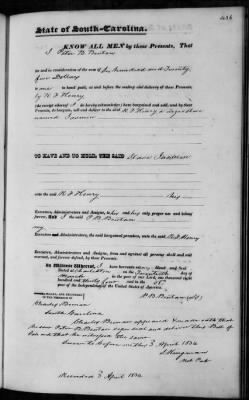 State of South-Carolina.
KNOW ALL MEN by these Presents, That
I Peter B. 
for and in consideration of the sum of Six hundred and Twenty
five Dollars
to me in hand paid, at and before the sealing and delivery of these Presents,
by H F Henry
(the receipt whereof I do hereby acknowledge) have bargained and sold, and by these
Presents, do bargain, sell and deliver to the said H F Henry a negro slave
named
TO HAVE AND TO HOLD, THE SAID Slave
unto the said H F Henry his
Executors, Administrators and Assigns, to his and his only proper use and behoof,
forever. And I the said P B
my
Executors and Administrators, the said bargained premises, unto the said H F Henry
Executors, Administrators and Assigns, from and against all persons shall and will
warrant, and forever defend, by these Presents.
In Witness Whereof, I have hereunto set my Hand and Seal
Dated at Charleston on the Twentieth day of
March in the year of our Lord, one thousand eight
hundred and thirty four and in the 58th
year of the Independence of the United States of America.
P. B.
SIGNED, SEALED, AND DELIVERED
IN THE PRESENCE OF
Charles
South Carolina
Charles appeared made oath that
he saw Peter B. sign seal and deliver this Bill of
Sale and that he witnessed the same
Sworn to before me this 3 April 1834
Not Pub
Recorded 3 April 1834